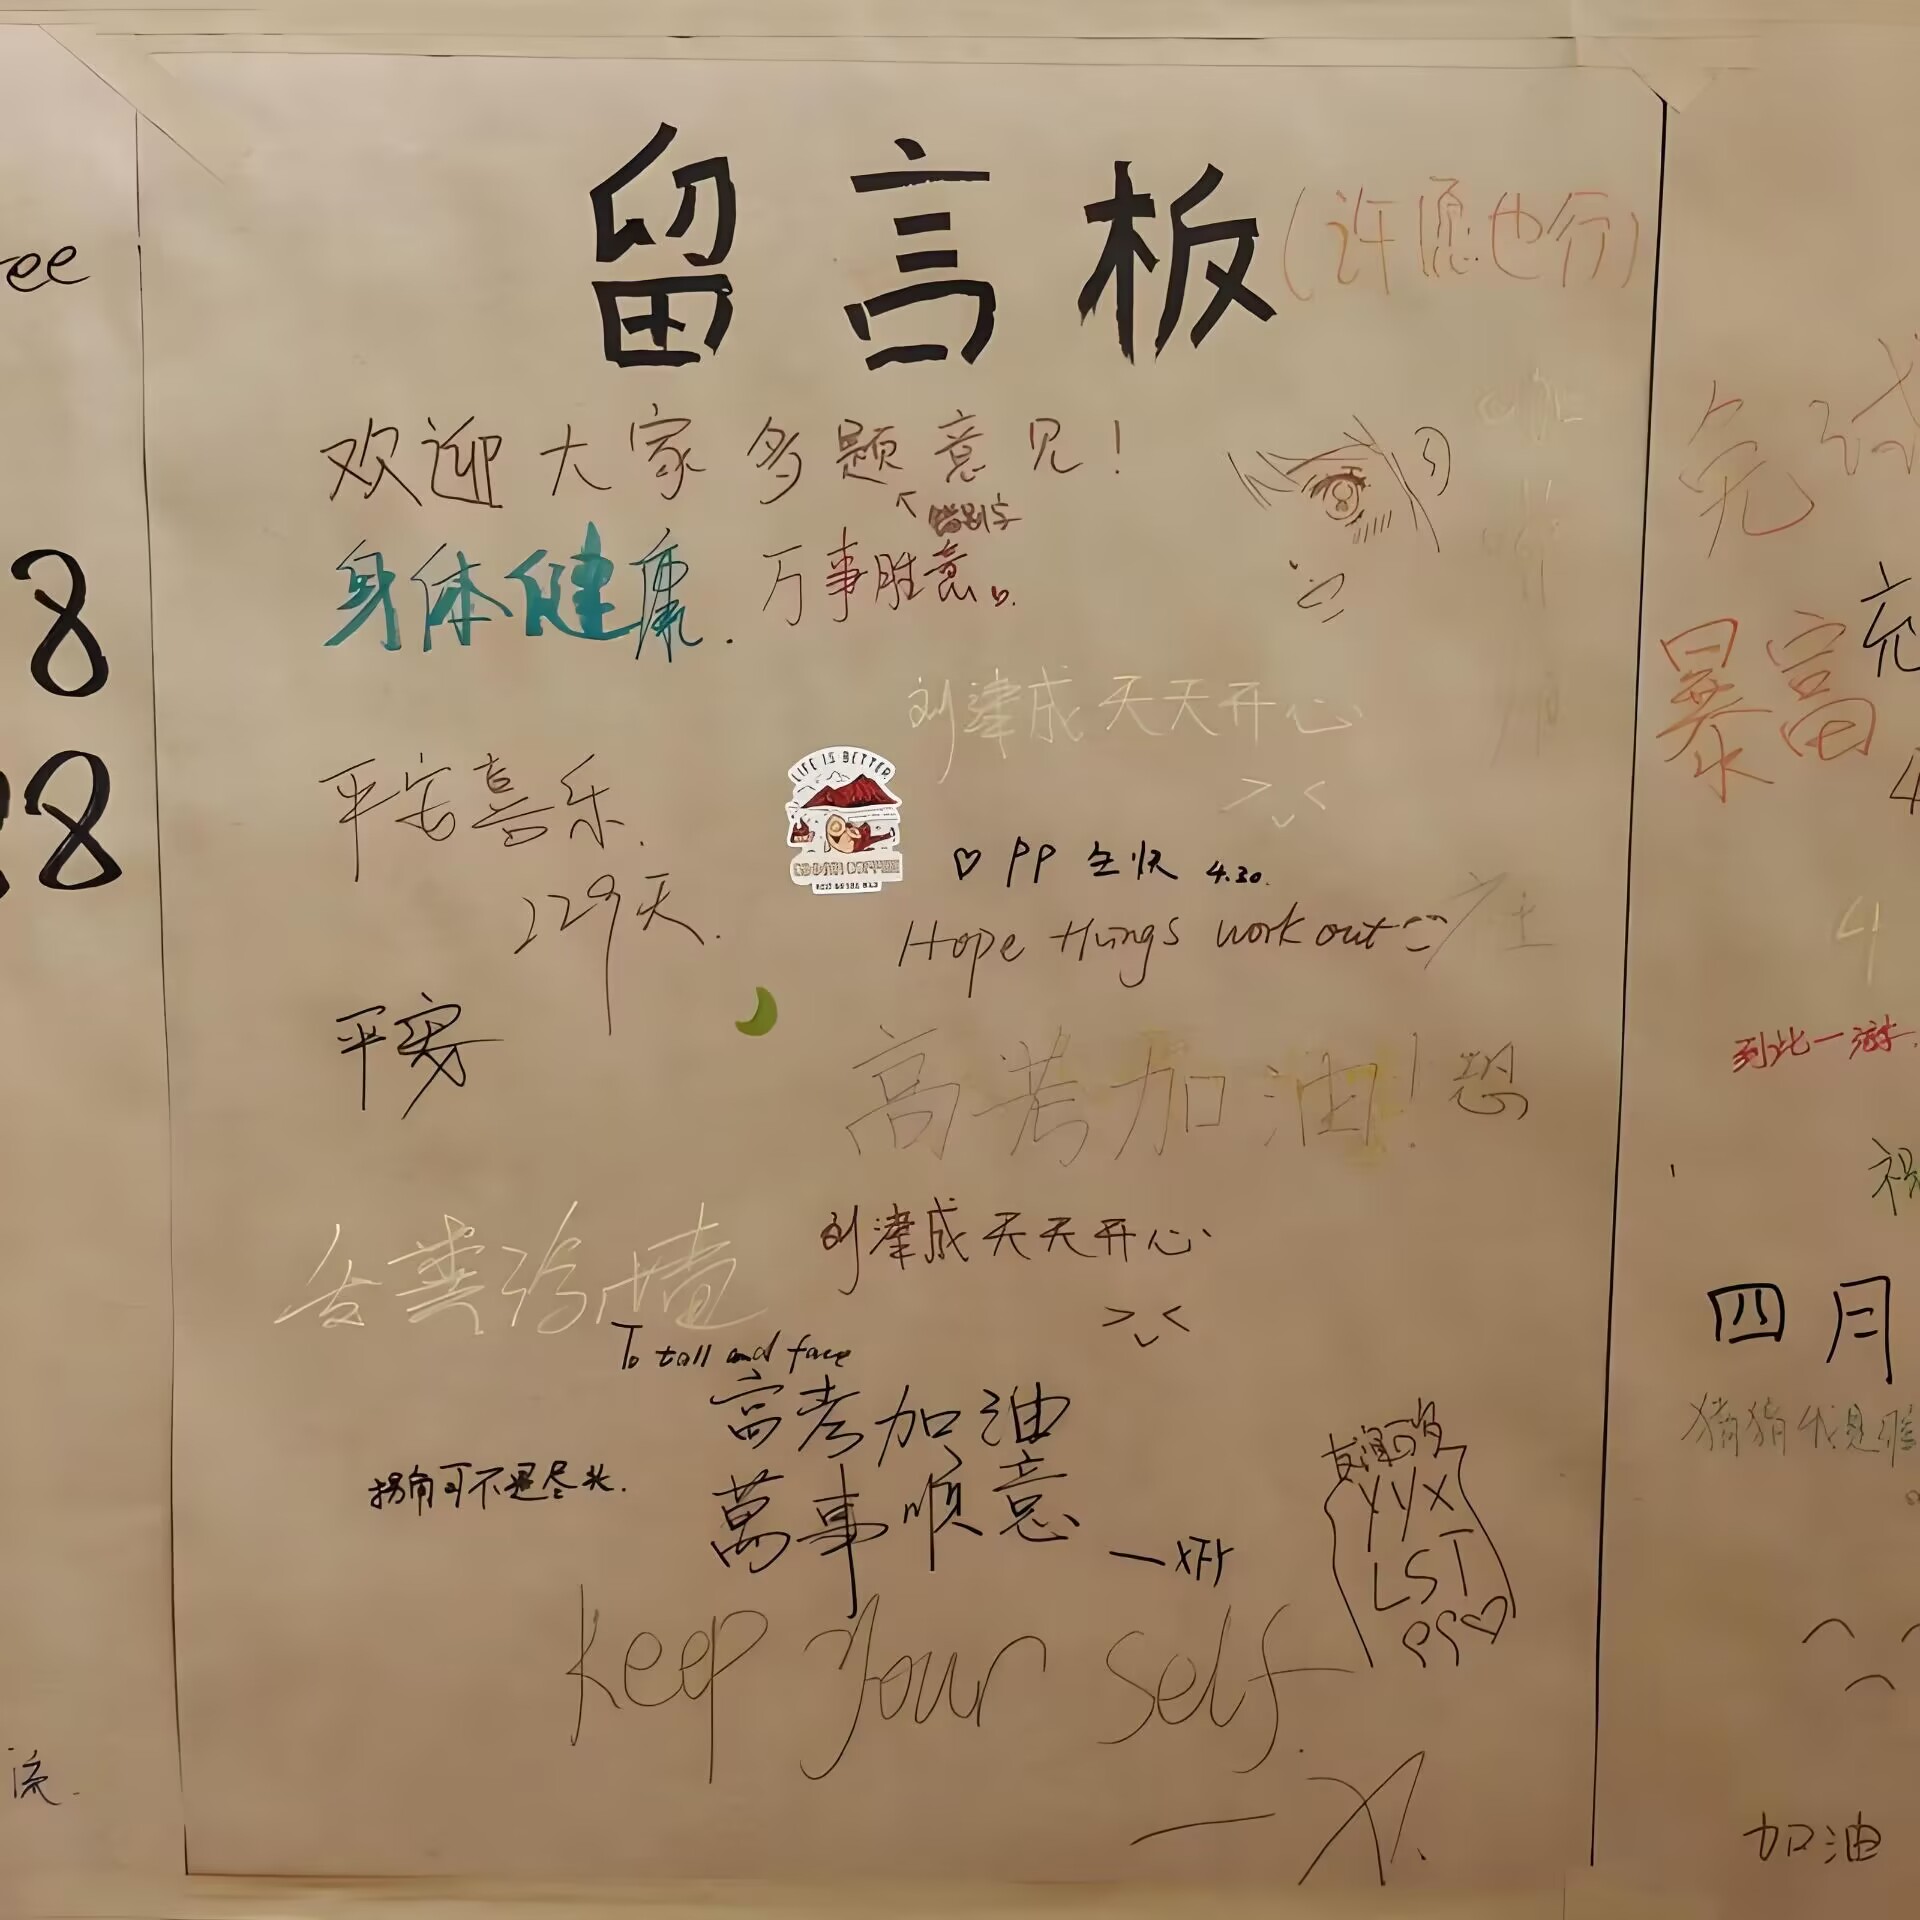 留言板(许愿也行)
欢迎大家多题意见!
错别字
身体健康.万事胜意
刘津成天天开心
平安喜乐.
LIFE IS BETTER
♡ PP 生快 4.30.
129天.
Hope things work out
平安
高考加油!
刘津成天天开心
To tall and face
高考加油
拐角可不是尽头.
萬事顺意
YYX
LST
Keep Your self
—X.
ee
8
28
流.
暴富
充
4
到此一游.
四月
加油